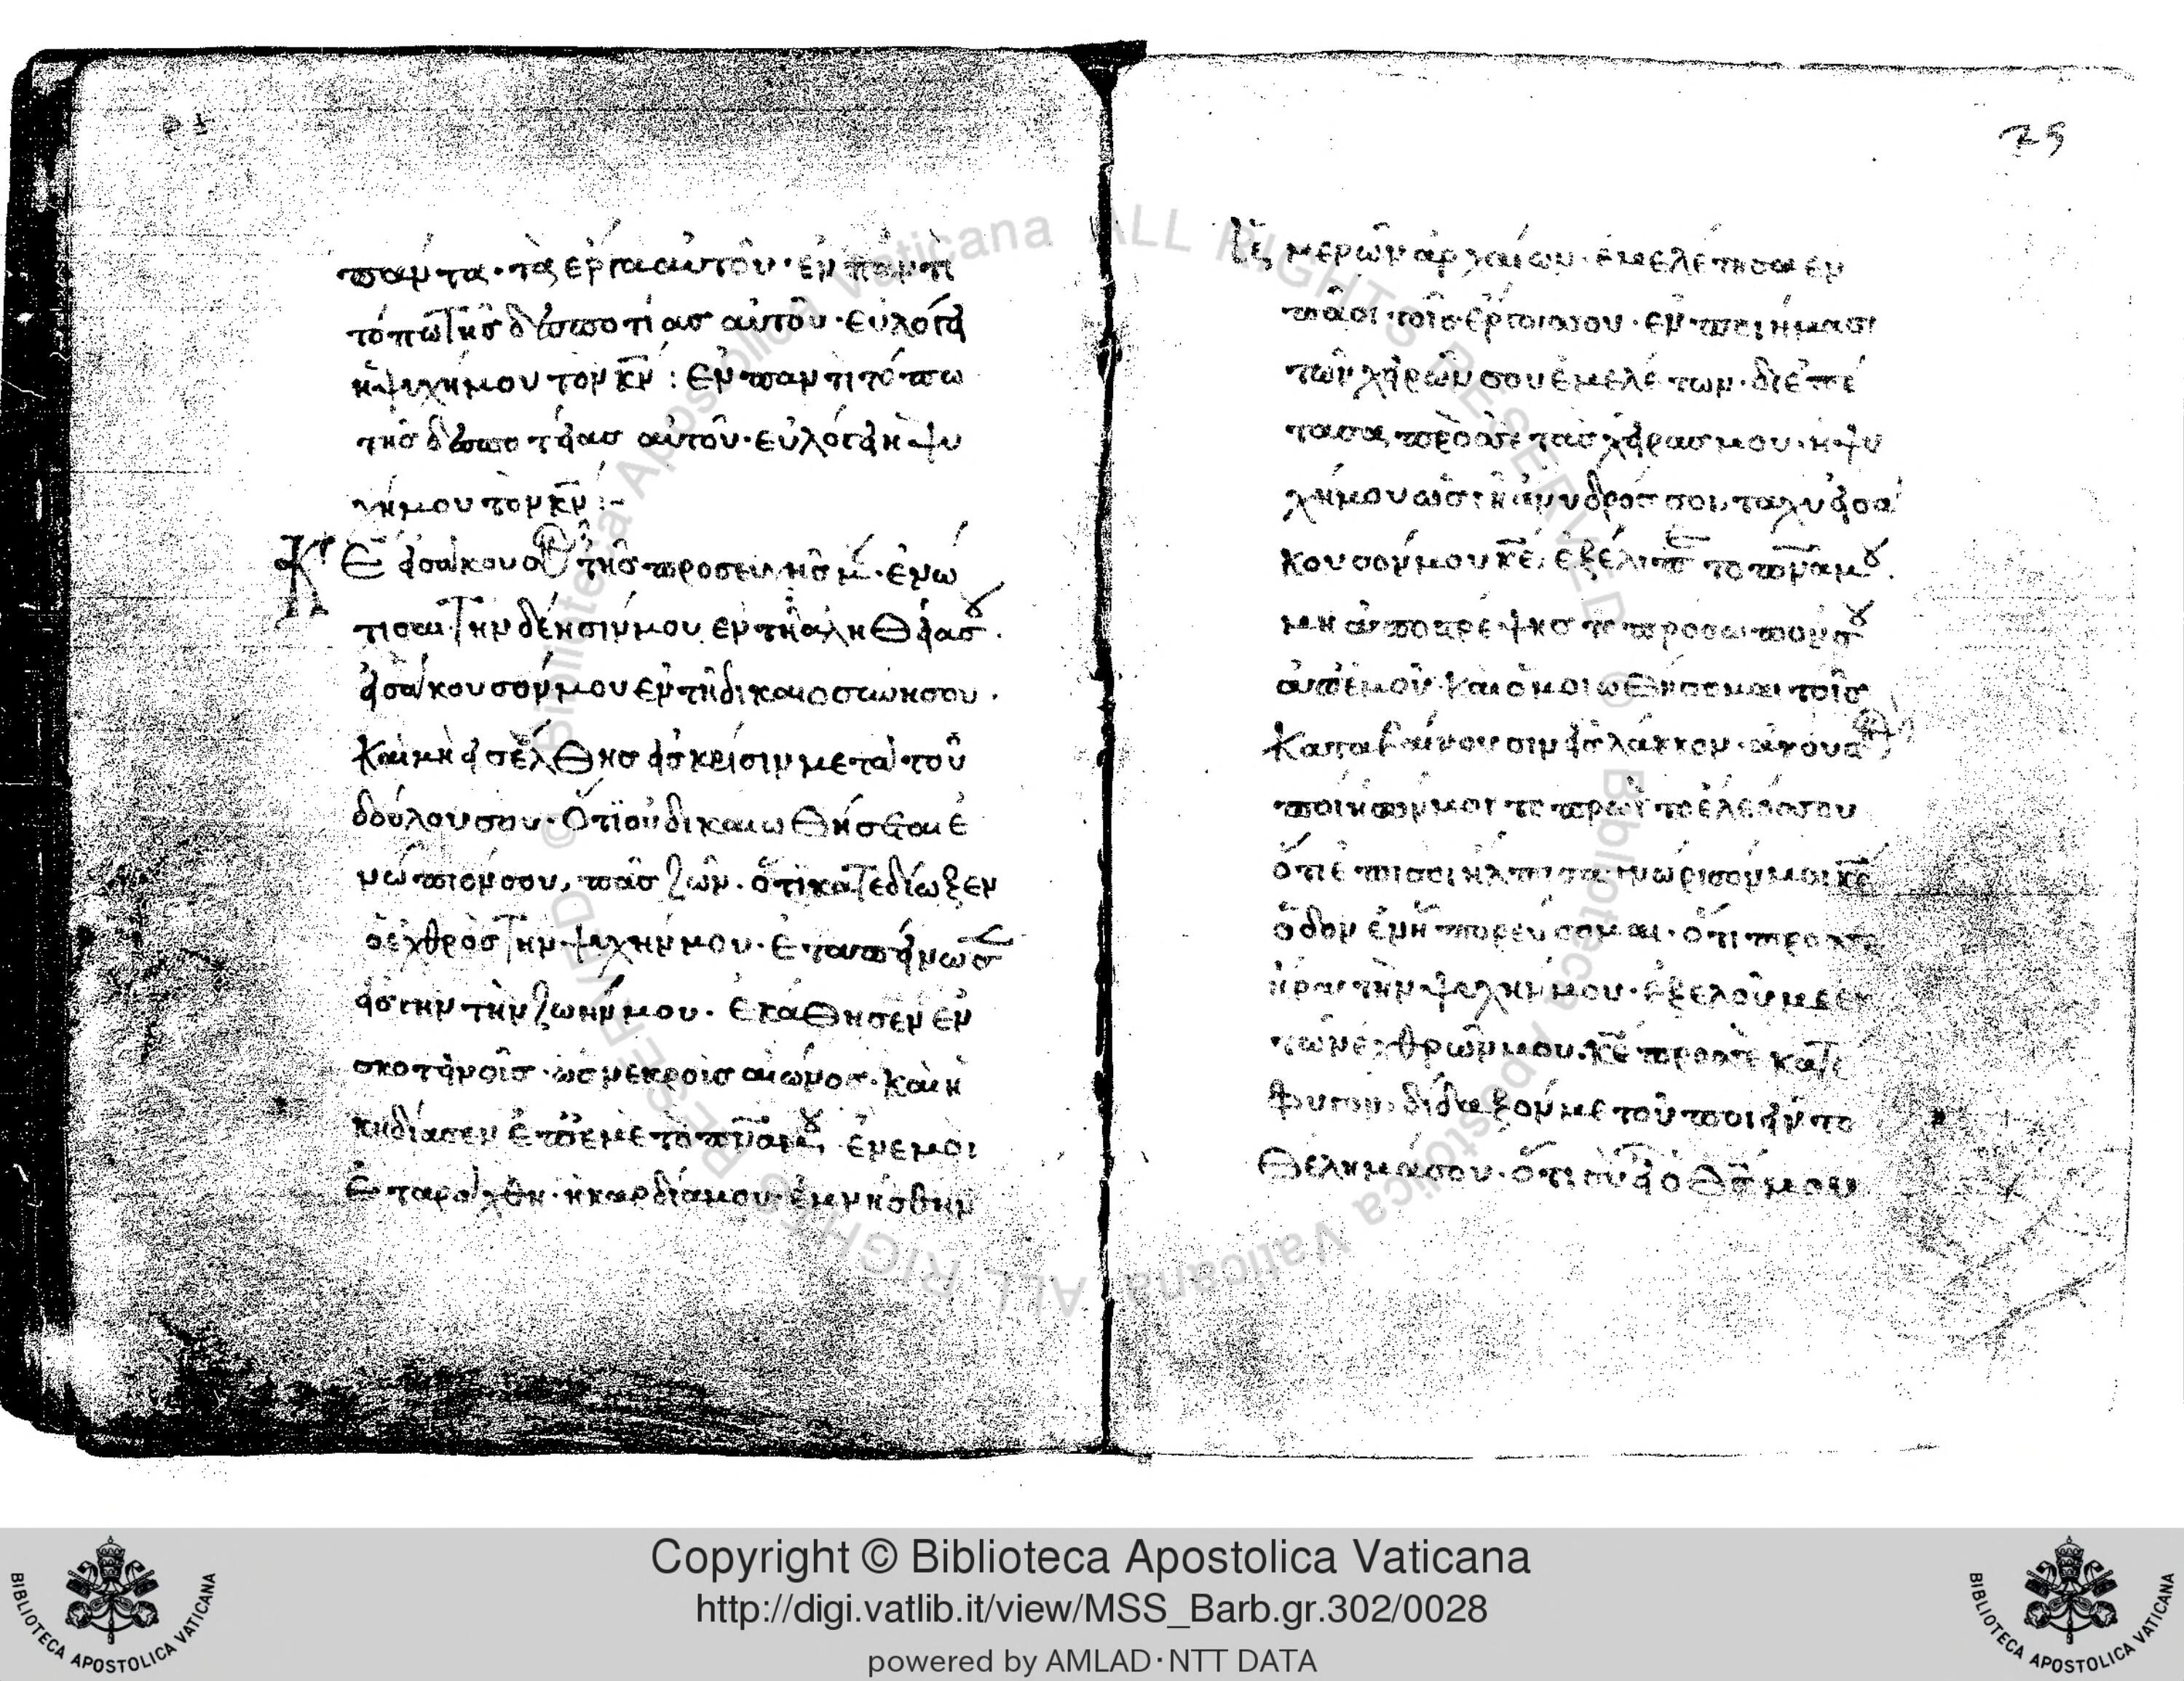 πάντα· τὰ ἔργα αὐτοῦ· ἐν παντὶ
τόπω τῆσ δεσποτίασ αὐτοῦ· εὐλόγει
ἡ ψυχήμου τὸν κ̅ν̅: Ἐν παντὶ τόπω
τῆσ δεσποτείασ αὐτοῦ· εὐλόγει ἡ ψυ
χήμου τὸν κ̅ν̅:-
Κ̅Ε̅ εἰσάκουσον τῆσ προσευχῆσ μου· ἐνώ
τισαι τὴν δέησίν μου ἐν τῆ ἀληθείασου.
εἰσάκουσόν μου ἐν τῆ δικαιοσύνησου.
Καὶ μὴ εἰσέλθησ εἰσ κρίσιν μετὰ τοῦ
δούλου σου· Ὅτι οὐ δικαιωθήσεται ἐ
νώπιόν σου, πᾶσ ζῶν· ὅτι κατεδίωξεν
ὁ ἐχθρὸσ τὴν ψυχήν μου· Ἐταπείνωσεν
εἰσ τὴν τὴν ζωήν μου· ἐκάθησέν ἐν
σκοτεινοῖσ· ὡσ νεκροὺσ αἰῶνοσ· καὶ ἠ
κηδίασεν ἐπ' ἐμὲ τὸ πν̅ά μου, ἐν ἐμοὶ
ἐταράχθη· ἡ καρδία μου· ἐμνήσθην
29
μερῶν ἀρχαίων· ἐμελέτησα ἐν
πᾶσι τοῖσ ἔργοισ σου· ἐν ποιήμασι
τῶν χειρῶν σου ἐμελέτων· διεπέ
τασα πρὸσ σὲ τὰσ χεῖρασ μου· ἡ ψυ
χήμου ὡσ γῆ ἄνυδρόσ σοι, ταχὺ εἰσά
κουσόν μου κ̅ε̅, ἐξέλιπεν τὸ πν̅ά μου.
μὴ ἀποστρέψησ τὸ πρόσωπόν σου
ἀπ' ἐμοῦ· Καὶ ὁμοιωθήσομαι τοῖσ
Καταβαίνουσιν εἰσ λάκκον· ἀκουστὸν
ποίησόν μοι τὸ πρωῒ τὸ ἔλεόσ σου
ὅτι ἐπὶ σοὶ ἤλπισα· γνώρισόν μοι κ̅ε̅
ὁδὸν ἐν ἧ πορεύσομαι· ὅτι πρὸσ σὲ
ἦρα τὴν ψυχήν μου· ἐξελοῦ με ἐκ
τῶν ἐχθρῶν μου. κ̅ε̅ πρὸσ σὲ κατέ
φυγον· δίδαξόν με τοῦ ποιεῖν τὸ
Θέλημά σου· ὅτι σὺ εἶ ὁ Θ̅σ̅ μου
Copyright © Biblioteca Apostolica Vaticana
http://digi.vatlib.it/view/MSS_Barb.gr.302/0028
powered by AMLAD·NTT DATA
BIBLIOTECA APOSTOLICA VATICANA
BIBLIOTECA APOSTOLICA VATICANA